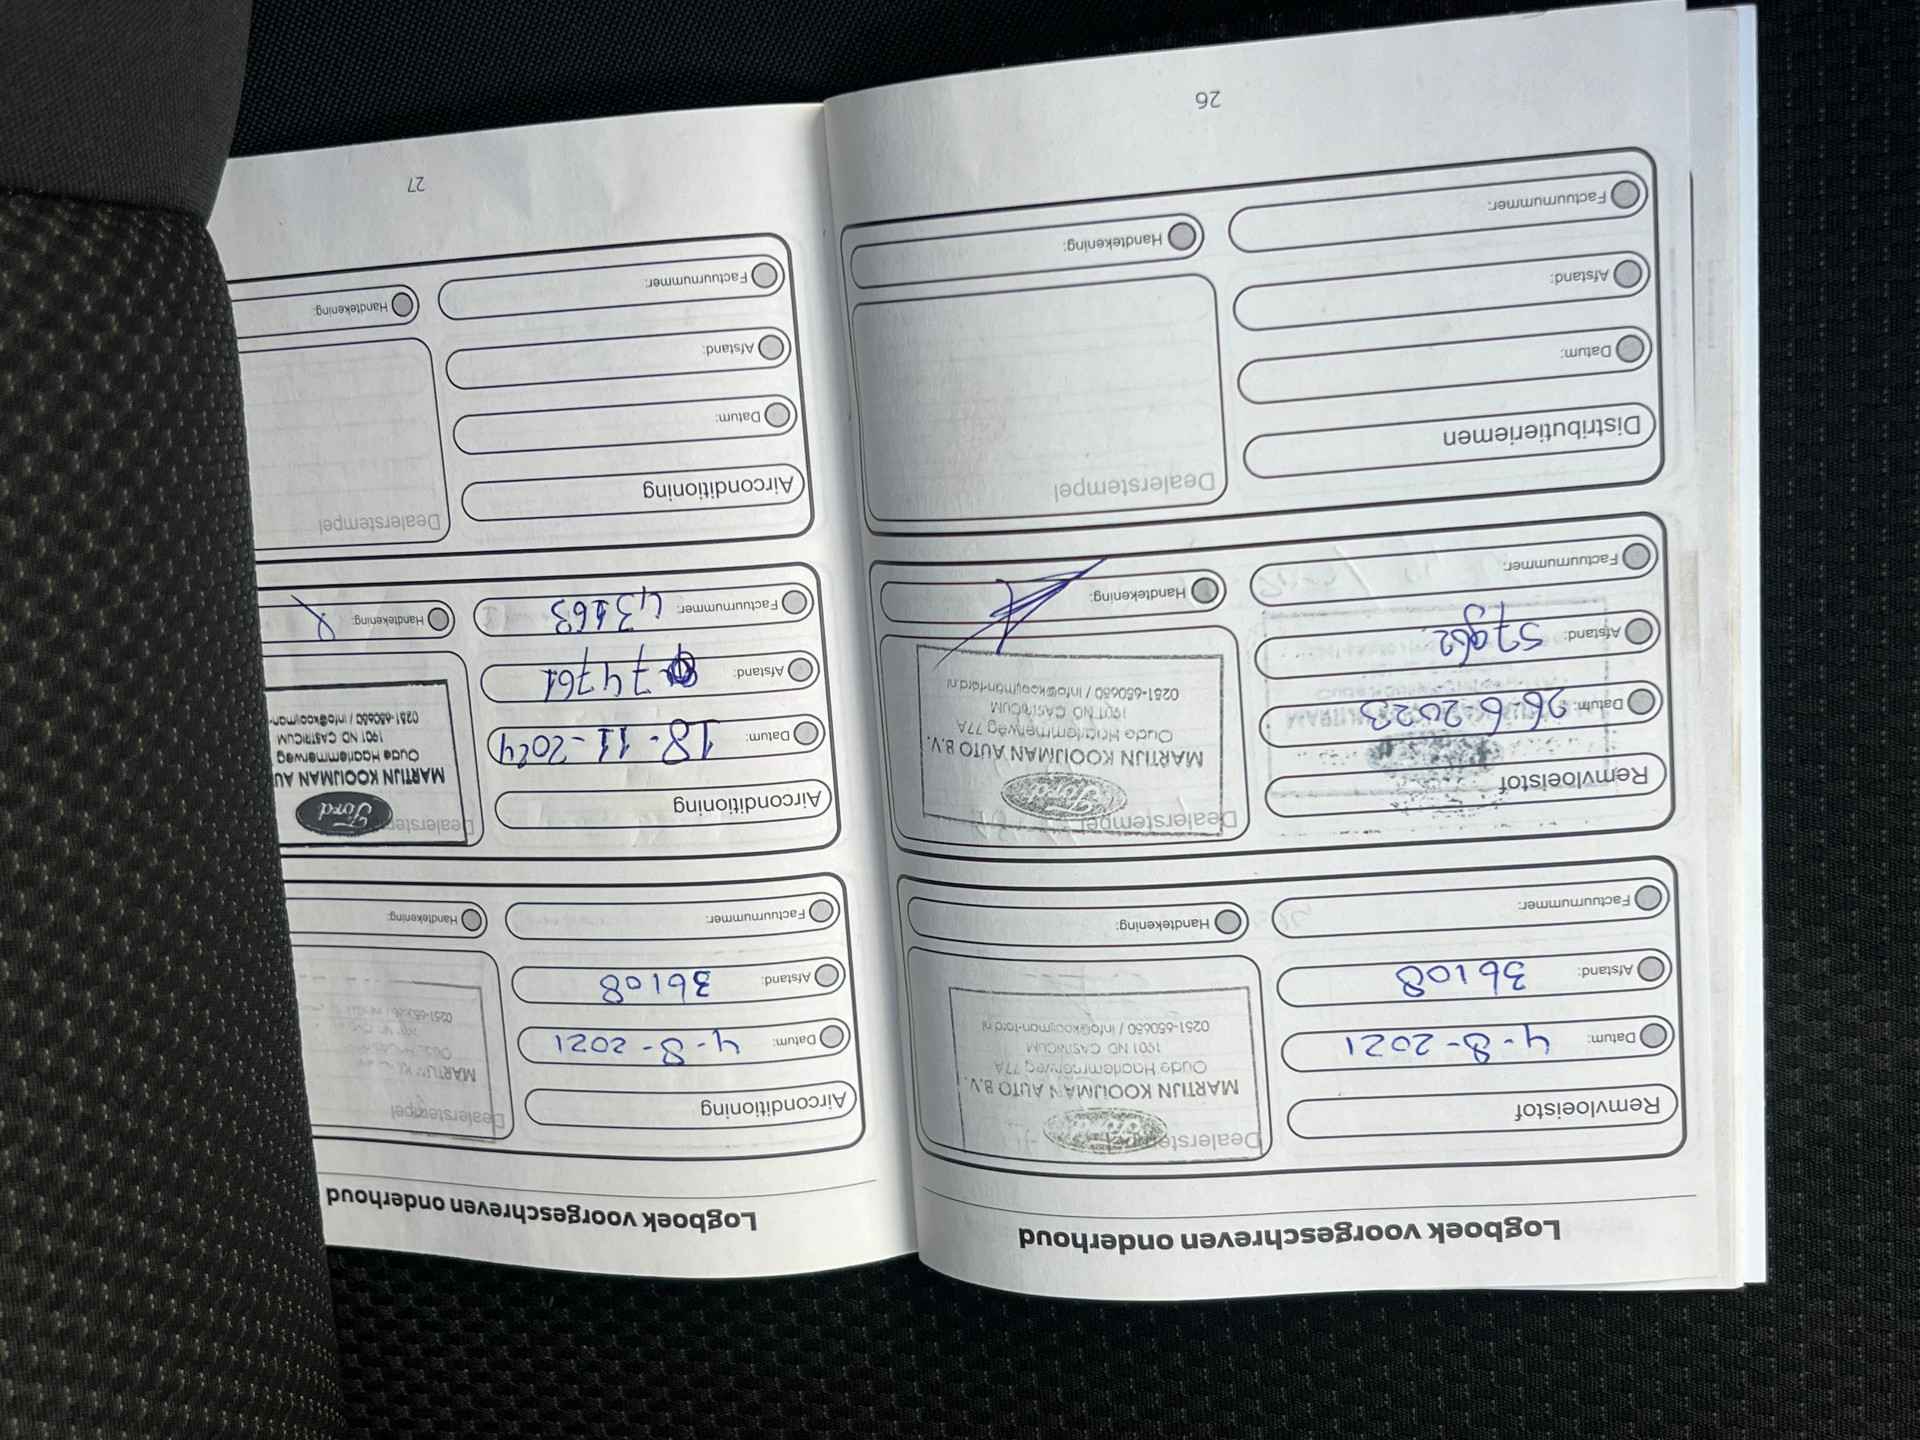 Logboek voorgeschreven onderhoud
Remvloeistof
Datum: 4-8-2021
Afstand: 36108
Factuurnummer:
Dealerstempel
Ford
MARTIJN KOOIJMAN AUTO B.V.
Oude Haarlemmerweg 77A
1901 ND CASTRICUM
0251-650650 / info@kooijman-ford.nl
Handtekening:
Remvloeistof
Datum: 26-6-2023
Afstand: 57962
Factuurnummer:
Dealerstempel
Ford
MARTIJN KOOIJMAN AUTO B.V.
Oude Haarlemmerweg 77A
1901 ND CASTRICUM
0251-650650 / info@kooijman-ford.nl
Handtekening:
Distributieriemen
Datum:
Afstand:
Factuurnummer:
Dealerstempel
Handtekening:
26
Logboek voorgeschreven onderhoud
Airconditioning
Datum: 4-8-2021
Afstand: 36108
Factuurnummer:
Dealerstempel
MARTIJN
Handtekening:
Airconditioning
Datum: 18-11-2024
Afstand: 74761
Factuurnummer: 43163
Dealerstempel
Ford
MARTIJN KOOIJMAN AU
Oude Haarlemmerweg
1901 ND CASTRICUM
0251-650650 / info@kooijman-
Handtekening:
Airconditioning
Datum:
Afstand:
Factuurnummer:
Dealerstempel
Handtekening:
27